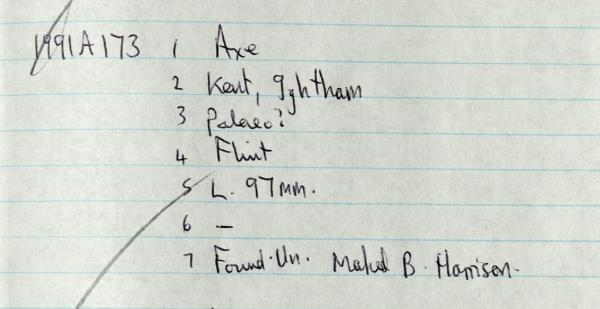 1991A173 1 Axe
2 Kent, Ightham
3 Palaeo?
4 Flint
5 L. 97mm.
6 —
7 Found. Un. B. Harrison.